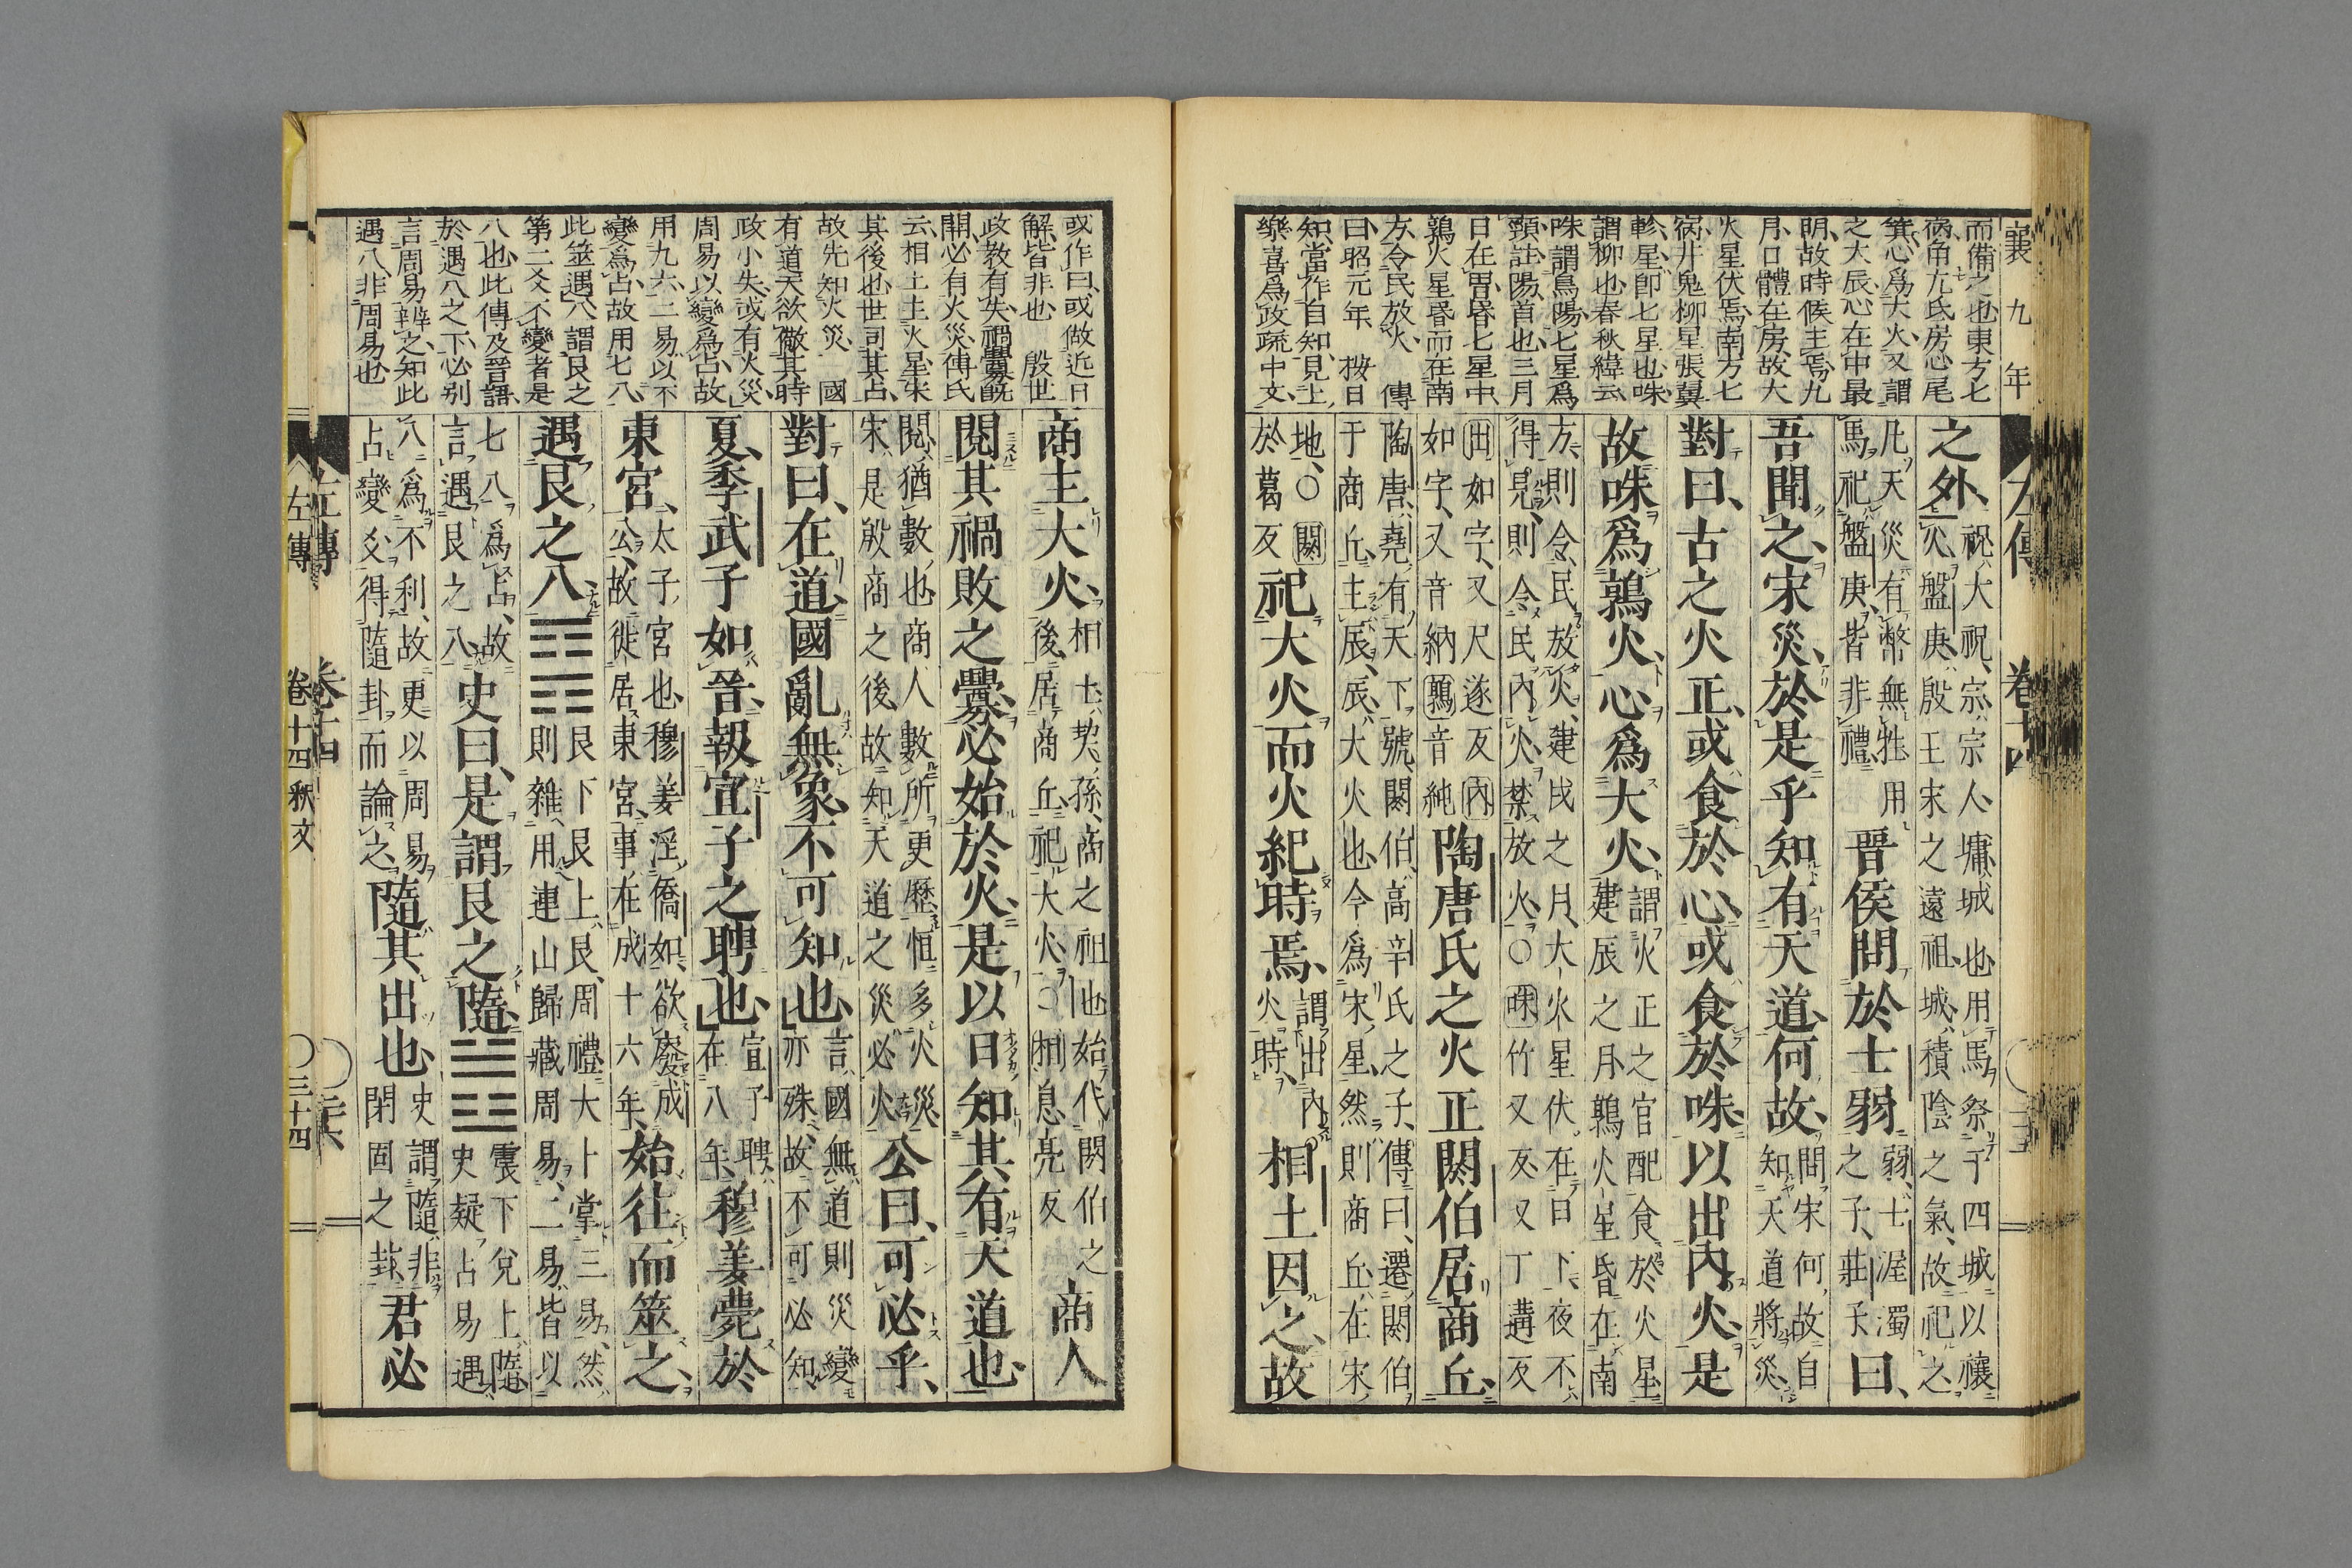 襄九年
而備之也東方七
宿角亢氐房心尾
箕心爲大火又謂
之大辰心在中最
明故時候主焉九
月口體在房故大
火星伏焉南方七
宿井鬼柳星張翼
軫星卽七星也咮
謂柳也春秋緯云
咮謂鳥陽七星爲
頸註陽首也三月
日在胃昏七星中
鶉火星昏而在南
方令民放火 傳
曰昭元年 按日
知當作自知見士
樂喜爲政疏中文
之外、祝大祝、宗宗人、墉城也、用馬祭于四城以禳
火、盤庚、殷王宋之遠祖、城積陰之氣、故祀之、
凡天災有幣無牲、用
馬祀盤庚、皆非禮、晉侯問於士弱弱、士渥濁
之子、莊子曰、
吾聞之、宋災、於是乎知有天道、何故、問宋何故自
知天道將災、
對曰、古之火正、或食於心、或食於咮、以出內火、是
故咮爲鶉火、心爲大火、謂火正之官配食於火星
建辰之月鶉火星昏在南
方、則令民放火、建戌之月、大火星伏在日下、夜不
得見、則令民內火、禁放火、〇咮竹又反又丁遘反
出如字、又尺遂反內
如字、又音納鶉音純陶唐氏之火正閼伯居商丘、
陶唐、堯有天下號、閼伯、高辛氏之子、傳曰、遷閼伯
于商丘、主辰、辰大火也、今爲宋星、然則商丘在宋
地、〇閼
於葛反祀大火、而火紀時焉、謂出內
火時、相土因之、故
左傳 卷十四
商主大火、相土、契孫、商之祖也始代閼伯之
後、居商丘、祀大火、〇相息亮反商人
閱其禍敗之釁、必始於火、是以日知其有天道也、
閱猶數也、商人數所更歷恒多火災
宋是殷商之後、故知天道之災必火公曰、可必乎、
對曰、在道、國亂無象、不可知也、言國無道則災變
亦殊、故不可必知
夏、季武子如晉、報宣子之聘也、宣子聘
在八年、穆姜薨於
東宮、太子宮也、穆姜淫僑如、欲廢成
公、故徙居東宮、事在成十六年、始往而筮之、
遇艮之八、䷳艮下艮上、艮、周禮、大卜掌三易、然
則雜用連山歸藏周易、二易皆以
七八爲占、故
言遇艮之八史曰、是謂艮之隨、䷐震下兌上、隨
史疑占易遇
八爲不利、故更以周易
占變爻得隨卦而論之隨其出也、史謂隨非
閉固之卦君必
或作曰或倣近日
解皆非也 殷世
政教有失禍釁旣
開必有火災傳氏
云相土主火星宋
其後也世司其占
故先知火災 國
有道天欲儆其時
政小失或有火災
周易以變爲占故
用九六二易以不
變爲占故用七八
此筮遇八謂艮之
第二爻不變者是
八也此傳及晉語
於遇八之下必別
言周易辨之知此
遇八非周易也
左傳 卷十四
左傳 卷十四 釈文 〇三十四